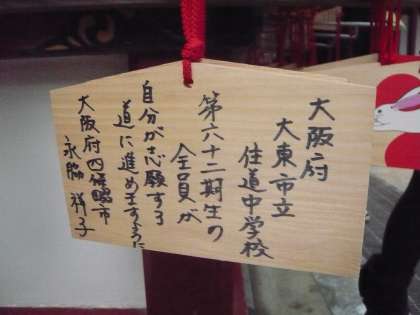 大阪府
大東市立
住道中学校
第六十二期生の
全員が
自分が志願する
道に進めますように
大阪府四條畷市
永脇 祥子